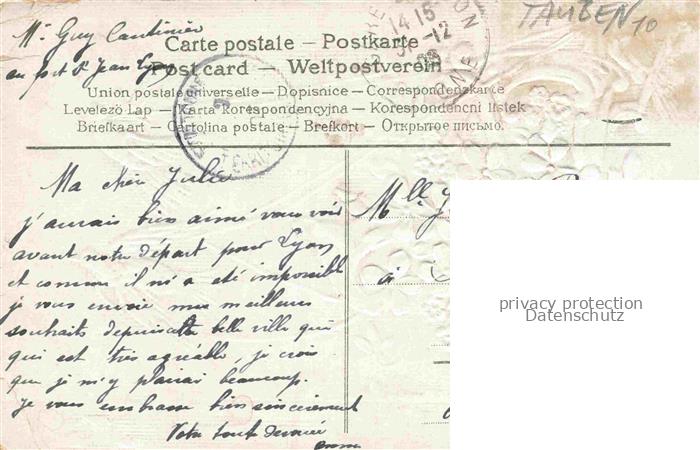 Mr Guy Cantinier
au fort St Jean Lyon
TAUBEN 10
14 15
Carte postale – Postkarte
Post card – Weltpostverein
Union postale universelle – Dopisnice – Correspondenzkarte
Levelező Lap – Karta korespondencyjna – Korespondenční listek
Briefkaart – Cartolina postale – Brefkort – Открытое письмо.
Ma chère Julie
j'aurais bien aimé vous voir
avant notre départ pour Lyon
et comme il n'a été impossible
je vous envoie mes meilleurs
souhaits depuis cette belle ville qui
qui est très agréable, je crois
que je m'y plairai beaucoup.
Je vous embrasse bien sincèrement
Votre tout
Mlle
à
privacy protection
Datenschutz